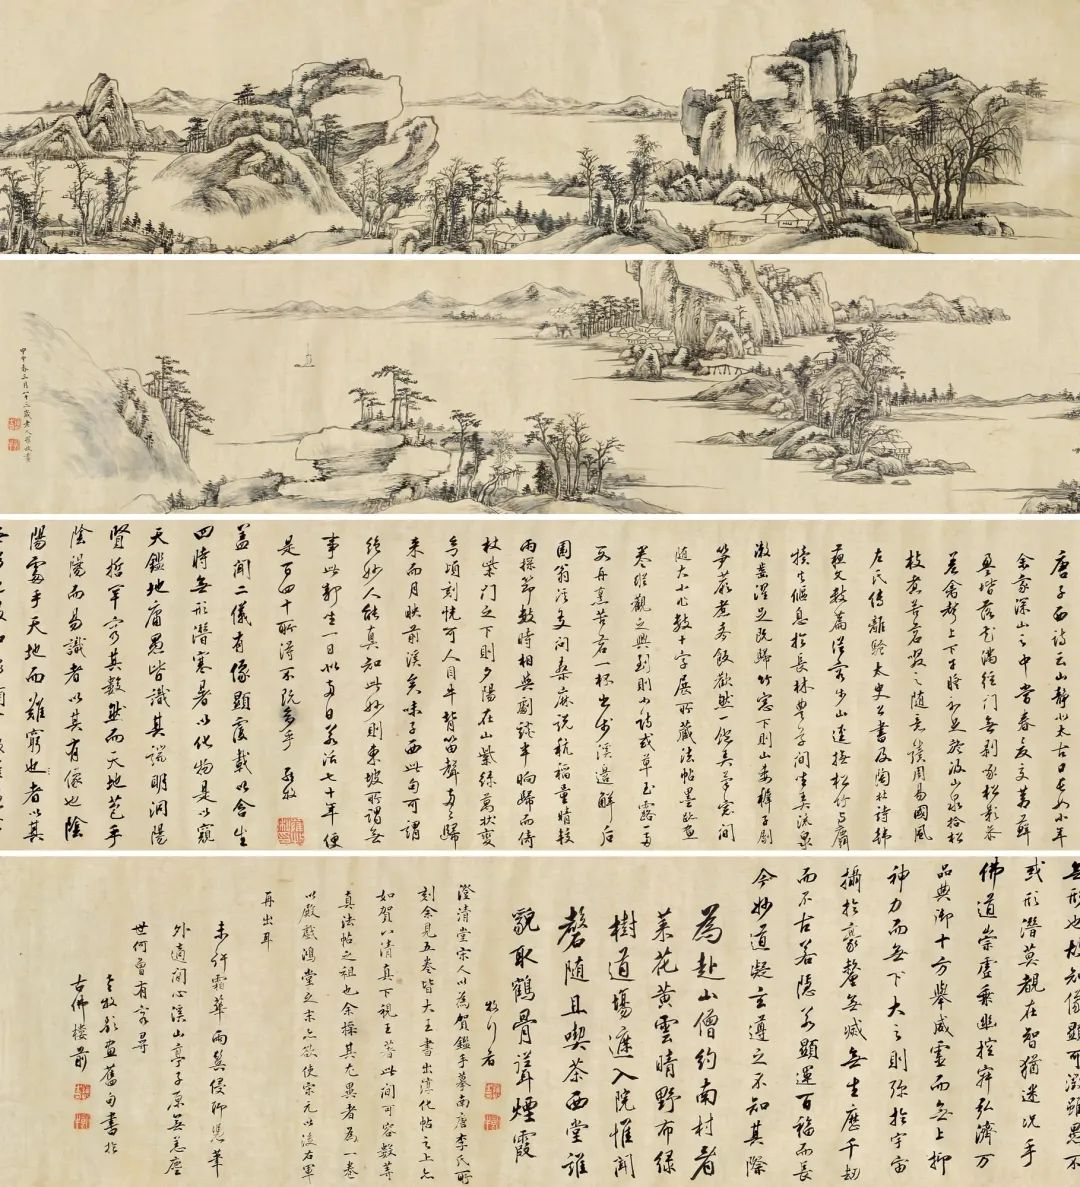 甲申春三月八十三歲老人牧畫
唐子西詩云山靜似太古日長如小年
余家深山之中每春夏交蒼蘚
盈堦落花滿徑門無剝啄松影參
差禽聲上下午睡初足旋汲山泉拾松
枝煮苦茗啜之隨意讀周易國風
左氏傳離騷太史公書及陶杜詩韓
蘇文數篇從容步山逕撫松竹与麛
犢共偃息於長林豐草間坐弄流泉
漱齒濯足既歸竹窓下則山妻稚子
笋蕨煮麥飯歡然一飽弄筆窓間
隨大小作數十字展所藏法帖墨跡畫
卷縱觀之興到則小詩或草玉露一兩
段再烹苦茗一杯出步溪邊解后
園翁溪友問桑麻說秔稻量晴校
雨探節數時相與劇談半晌歸而倚
杖柴門之下則夕陽在山紫綠萬狀變
幻頃刻恍可人目牛背笛聲兩兩歸
來而月映前溪矣味子西此句可謂
絕妙人能真知此妙則東坡所謂無
事此靜坐一日似兩日若活七十年便
是百四十所得不既多乎 牧
蓋聞二儀有像顯覆載以含生
四時無形潛寒暑以化物是以窺
天鑑地庸愚皆識其端明洞陽
賢哲罕窮其數然而天地苞乎
陰陽而易識者以其有像也陰
陽處乎天地而難窮也者以其
無形也故知像顯可徵雖愚不
或形潛莫覩在智猶迷況乎
佛道崇虛乘幽控寂弘濟萬
品典御十方舉威靈而無上抑
神力而無下大之則彌於宇宙
攝於豪釐無滅無生歷千劫
而不古若隱若顯運百福而長
今妙道凝玄遵之不知其際
為赴山僧約南村看
菜花黃雲晴野布綠
樹道場遮入院惟聞
磬隨且喫茶西堂誰
貌取鶴骨聳煙霞
牧行者
澄清堂宋人以為賀鑑手摹南唐李氏所
刻余見五卷皆大王書出淳化帖之上亦
如賀八清真下視王著此間可容數等
真法帖之祖也余採其尤異者為一卷
以殿戲鴻堂之末亦欲使宋元以後右軍
再出耳
未仟霜華兩鬢侵聊憑筆
外適閒心溪山亭子原無恙塵
世何曾有客尋
老牧題畫舊句書於
古佛樓前